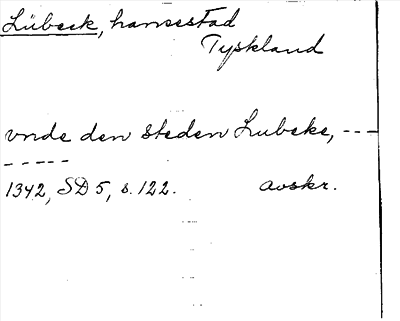 Lübeck, hansestad
Tyskland
vnde den steden Lubeke, ---
-----
1342, SD 5, s. 122. avskr.